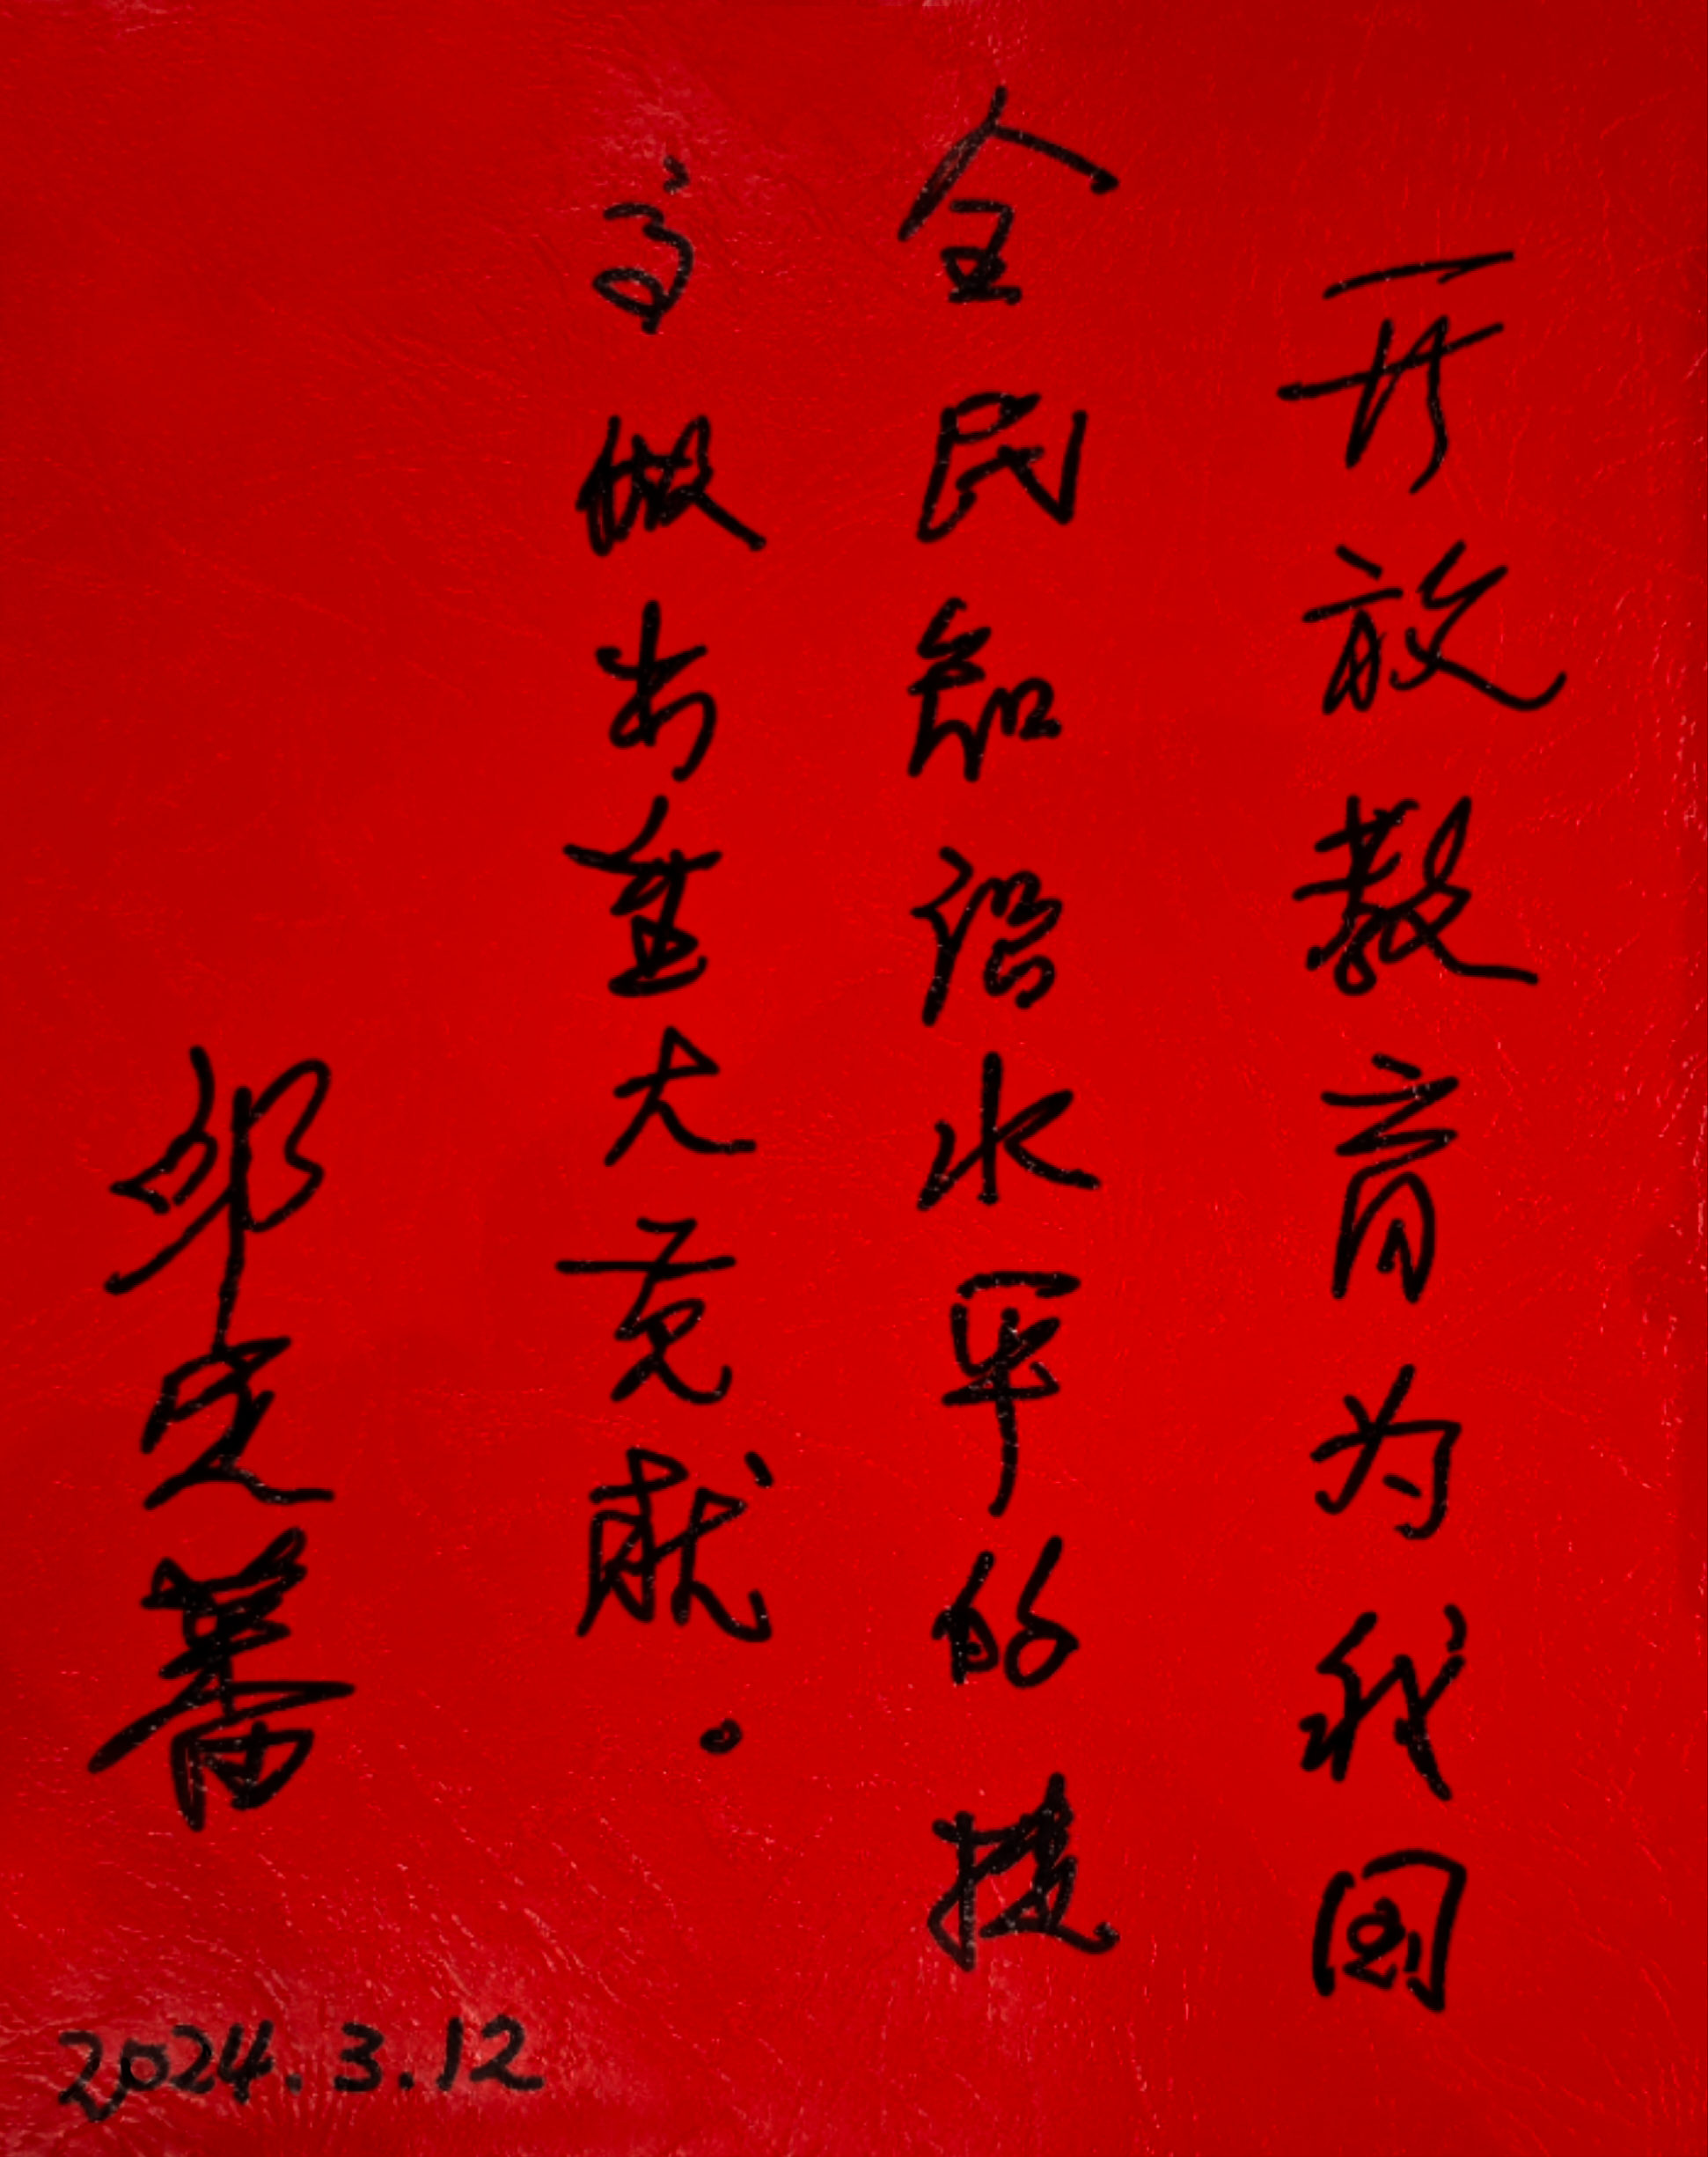 开放教育为我国
全民知识水平的提
高做出重大贡献。
2024.3.12